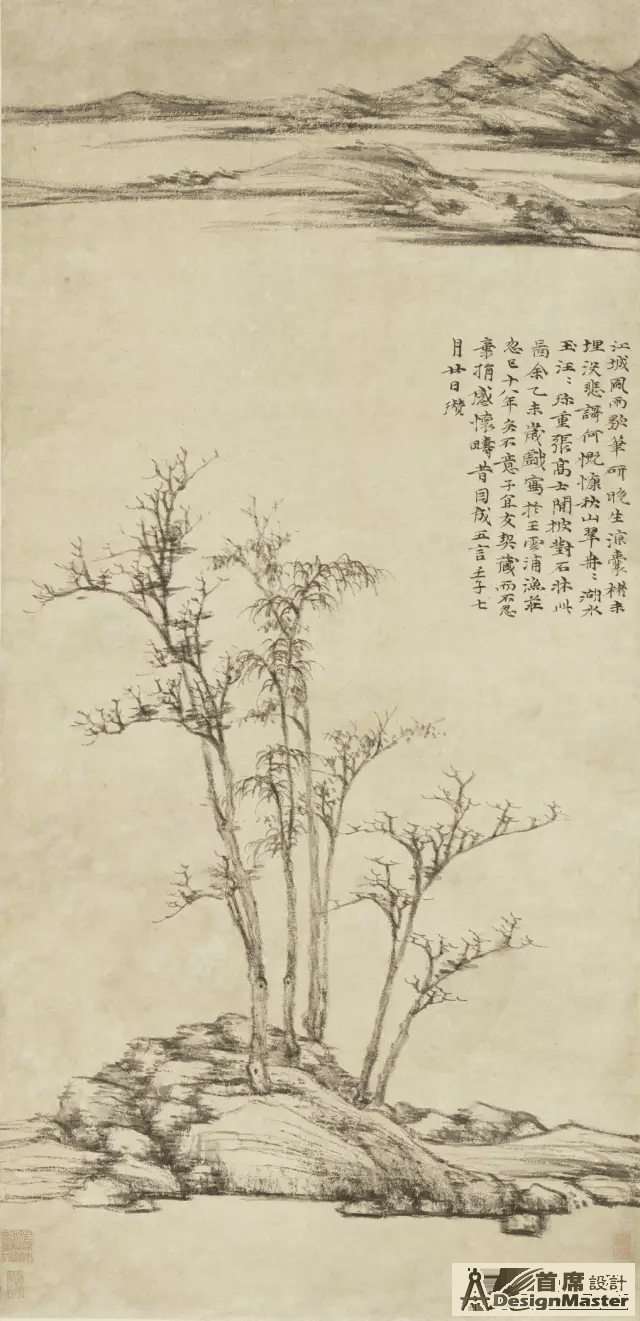 江城風雨歇筆研晚生涼囊楮未
埋沒悲謌何慨慷秋山翠冉〻湖水
玉汪〻珎重張高士閒披對石牀此
啚余乙未歲戲寫於王雲浦漁莊
忽已十八年矣不意子宜友契藏而不忍
棄捐感懷疇昔因成五言壬子七
月廿日瓚
首席設計
DesignMaster